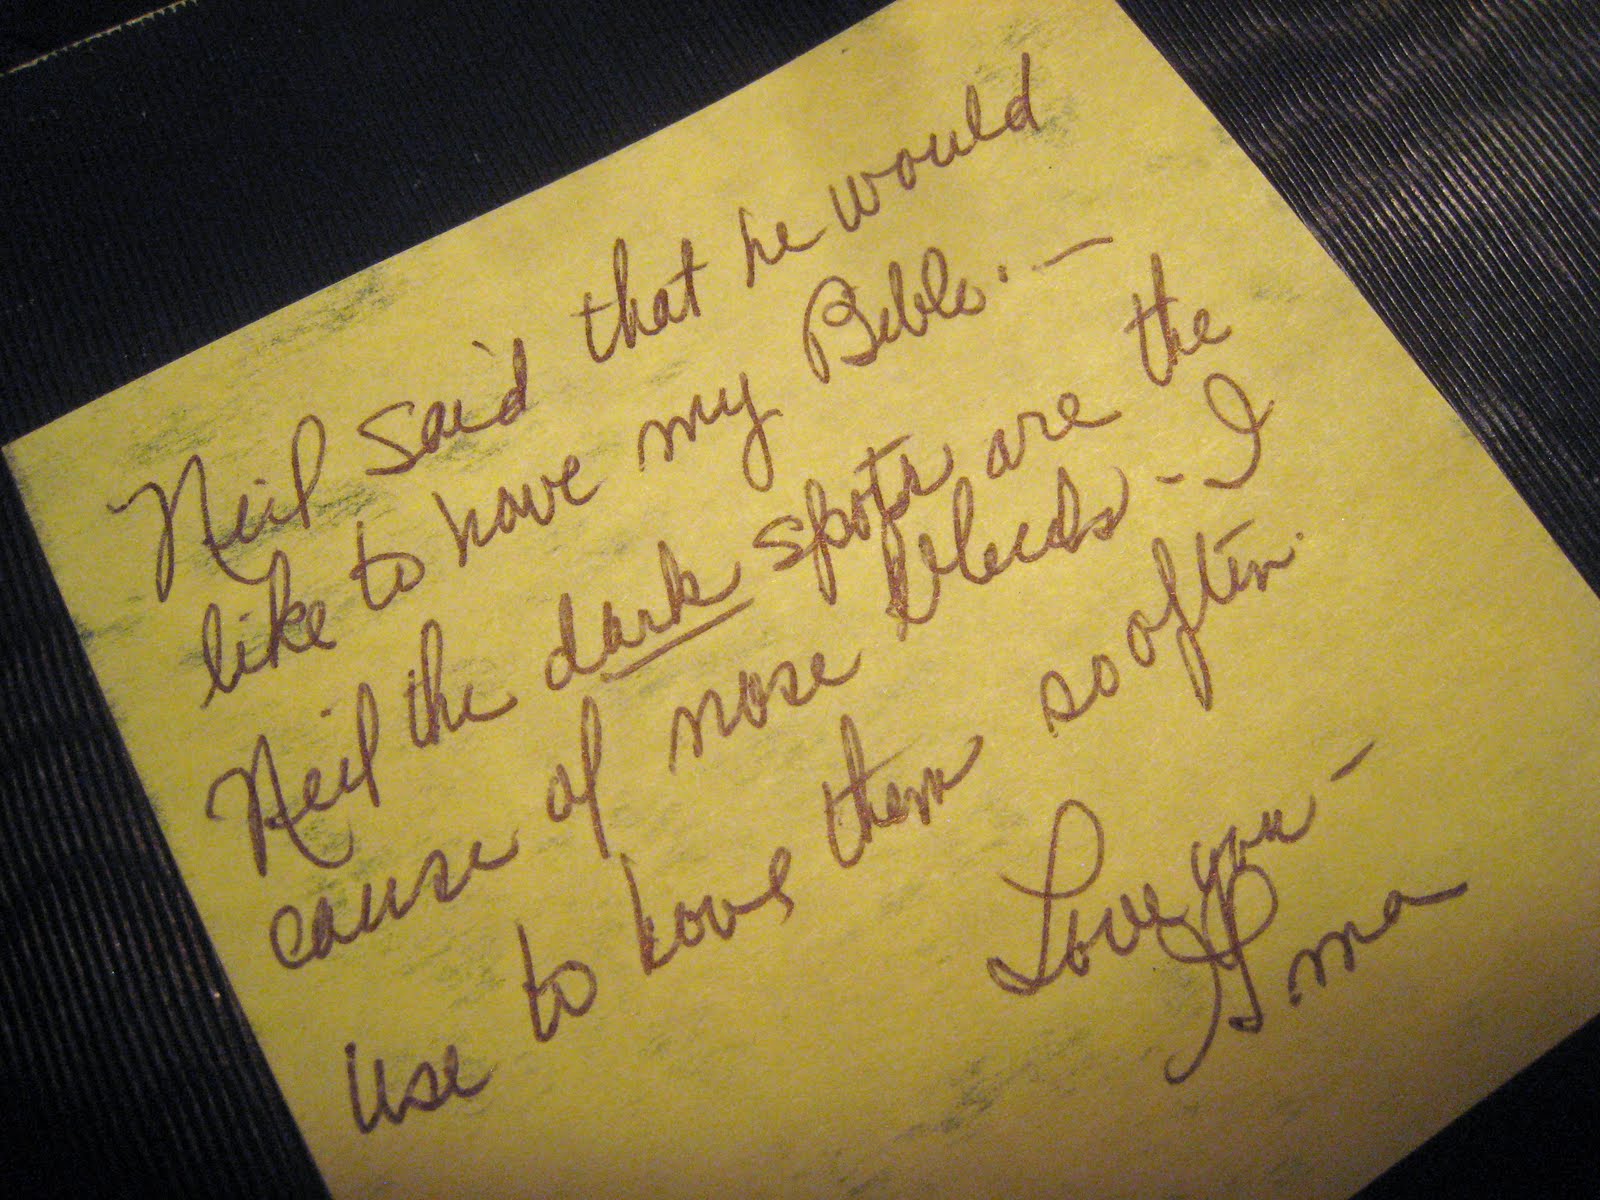 Neil said that he would
like to have my Bible. —
Neil the dark spots are the
cause of nose bleeds - I
use to have them so often.
Love you —
G.ma